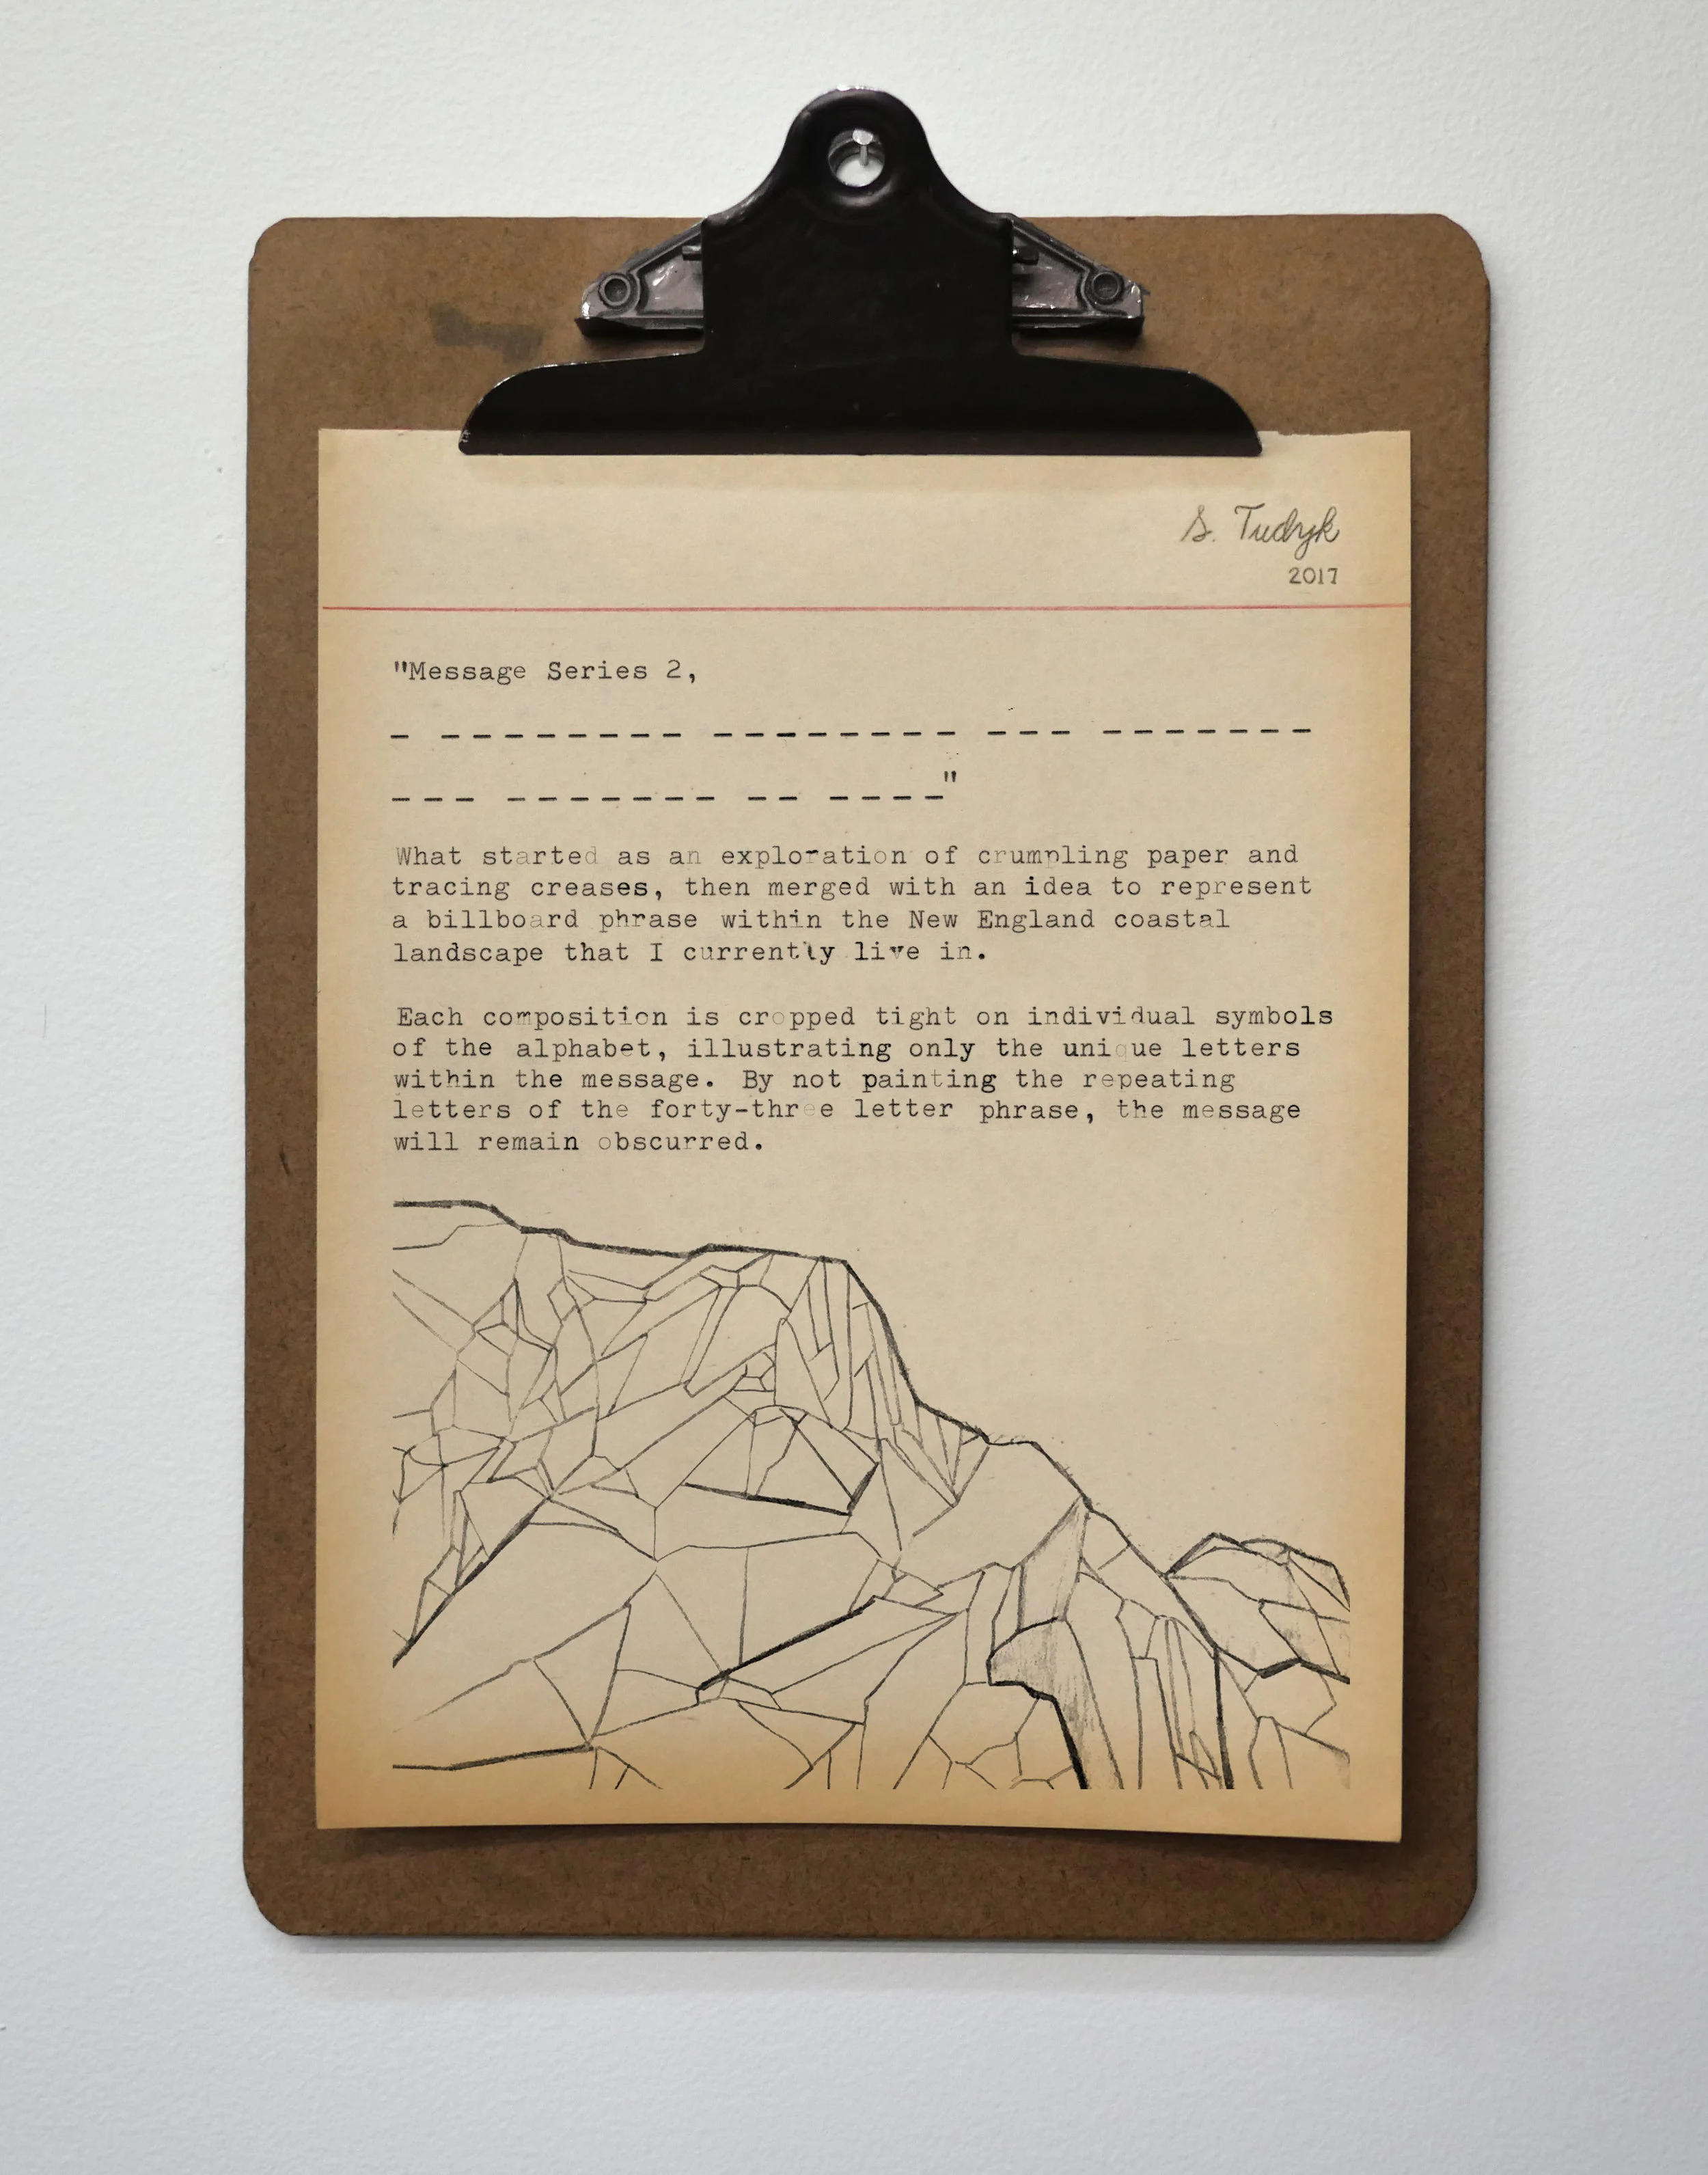 S. Tudyk
2017
"Message Series 2,
_ ________ ________ ___ _______
___ _______ __ ____"
What started as an exploration of crumpling paper and
tracing creases, then merged with an idea to represent
a billboard phrase within the New England coastal
landscape that I currently live in.
Each composition is cropped tight on individual symbols
of the alphabet, illustrating only the unique letters
within the message. By not painting the repeating
letters of the forty-three letter phrase, the message
will remain obscurred.